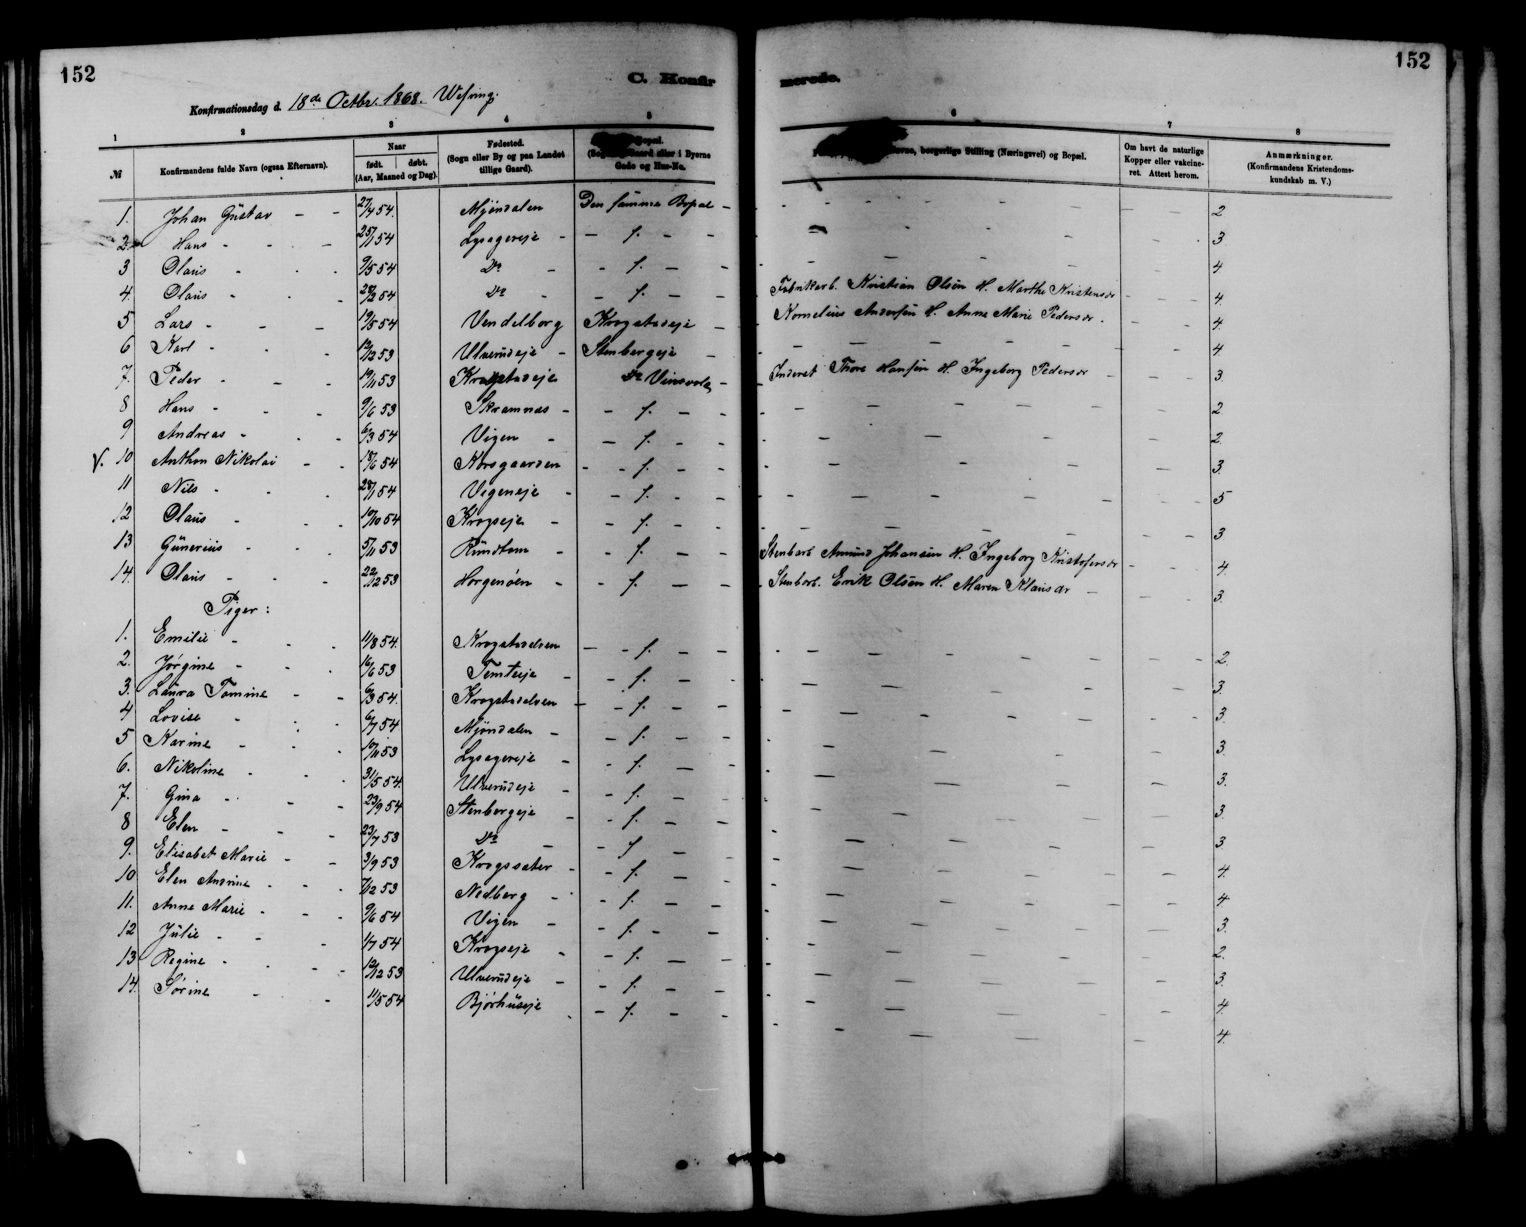 152
C. Konfir merede.
152
Konfirmationsdag d. 18de Octbr. 1868.
1 2 3 4 5 6 7 8
№ Konfirmandens fulde Navn (ogsaa Efternavn). Naar født. døbt. (Aar, Maaned og Dag). Fødested. (Sogn eller By og paa Landet tillige Gaard). Bopæl. eller i Byerne Gade og Hus-No. borgerlige Stilling (Næringsvei) og Bopæl. Om havt de naturlige Kopper eller vakcineret. Attest herom. Anmærkninger. (Konfirmandens Kristendomskundskab m. V.)
1. Johan Gustav - - 27/4 54. Mjøndalen Den samme Bopæl - 2
2. Hans - - 25/1 54 Lysagereje - f. - 3
3 Olaus - - 9/5 54 Do - f. - 4
4. Olaus - - 28/2 54 Do - f. - Fabrikarb. Kristian Olsen H. Marthe Kristensdr 4.
5 Lars - - 19/5 54 Vendelborg Krogstadeje - Kornelius Andersen H. Anne Marie Pedersdr. 4.
6 Karl - - 12/12 53 Ulverudeje - Stenbergeje - 4.
7. Peder - - 19/11 53 Krogstadeje Do - Inderst Thore Hansen H. Ingeborg Pedersdr 3.
8 Hans - - 9/6 53 Skramnæs - f. - 2
9 Andreas - - 6/3 54 Vigen - f. - 2.
V. 10 Anthon Nikolai - - 18/6 54 Korsgaarden - f. - 3.
11 Nils - - 28/1 54 Vigeneje - f. - 5
12 Olaus - - 19/10 54 Krogseje - f. - 3
13 Gunerius - - 5/11 53 Rundtom - f. - Stenbarb. Amund Johansen H. Ingeborg Kristofersdr 4.
14. Olaus - - 22/12 53 Horgenöen - f. - Stenbarb. Erik Olsen H. Maren Klausdr 3.
Piger:
1. Emilie - - 11/8 54. Krogstadelven - f. - 2.
2. Jörgine - - 16/6 53 Temteeje - f. - 3.
3. Laura Tomine - - 6/3 54. Krogstadelven - f. - 3.
4 Lovise - - 6/7 54 Mjöndalen - f. - 3.
5 Karine - - 19/11 53 Lysagereje - f. - 3.
6. Nikoline - - 31/5 54. Ulverudeje - f. - 3.
7. Gina - - 23/9 54 Stenbergeje - f. - 3
8 Elen - - 23/7 53 Do - f - 4.
9. Elisabet Marie - - 3/9 53 Krogssæter - f. - 4
10 Elen Andrine - - 7/12 53 Nedberg - f. - 3.
11. Anne Marie - - 9/6 54 Vigen - f. - 2.
12 Julie - - 1/7 54 Krogseje - f. - 3.
13 Regine - - 12/12 53 Ulverudeje - f. - 4.
14. Sörine - - 11/5 54 Bjørhuseje - f. - 4.